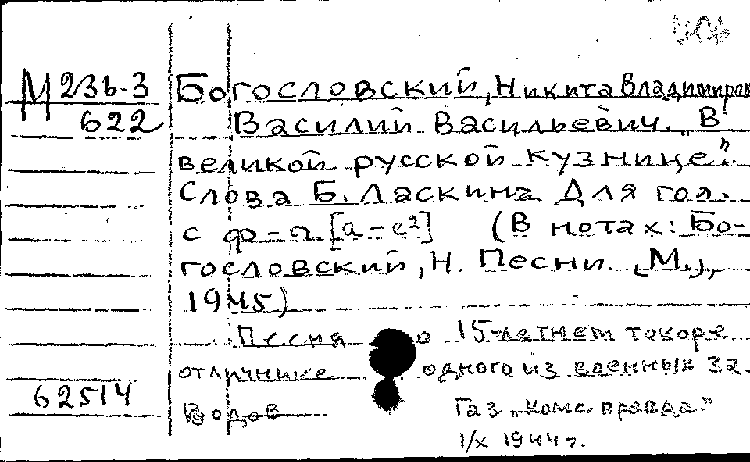 М 236-3 Богословский, Никита Владимиров
622 Василий Васильевич. „В
великой русской кузнице".
Слова Б. Ласкина Для гол.
с ф-п. [a-e²] (В нотах: Бо-
гословский, Н. Песни. [М.],
1945)
Песня о 15-летнем токаре
отличнике одного из военных за-
62514 водов
Газ. „Комс. правда"
1/X 1944 г.